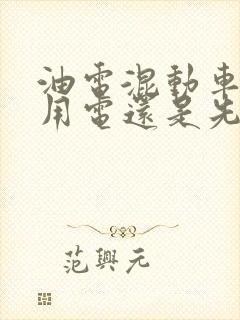 油電混動車
用電還是先
范興元